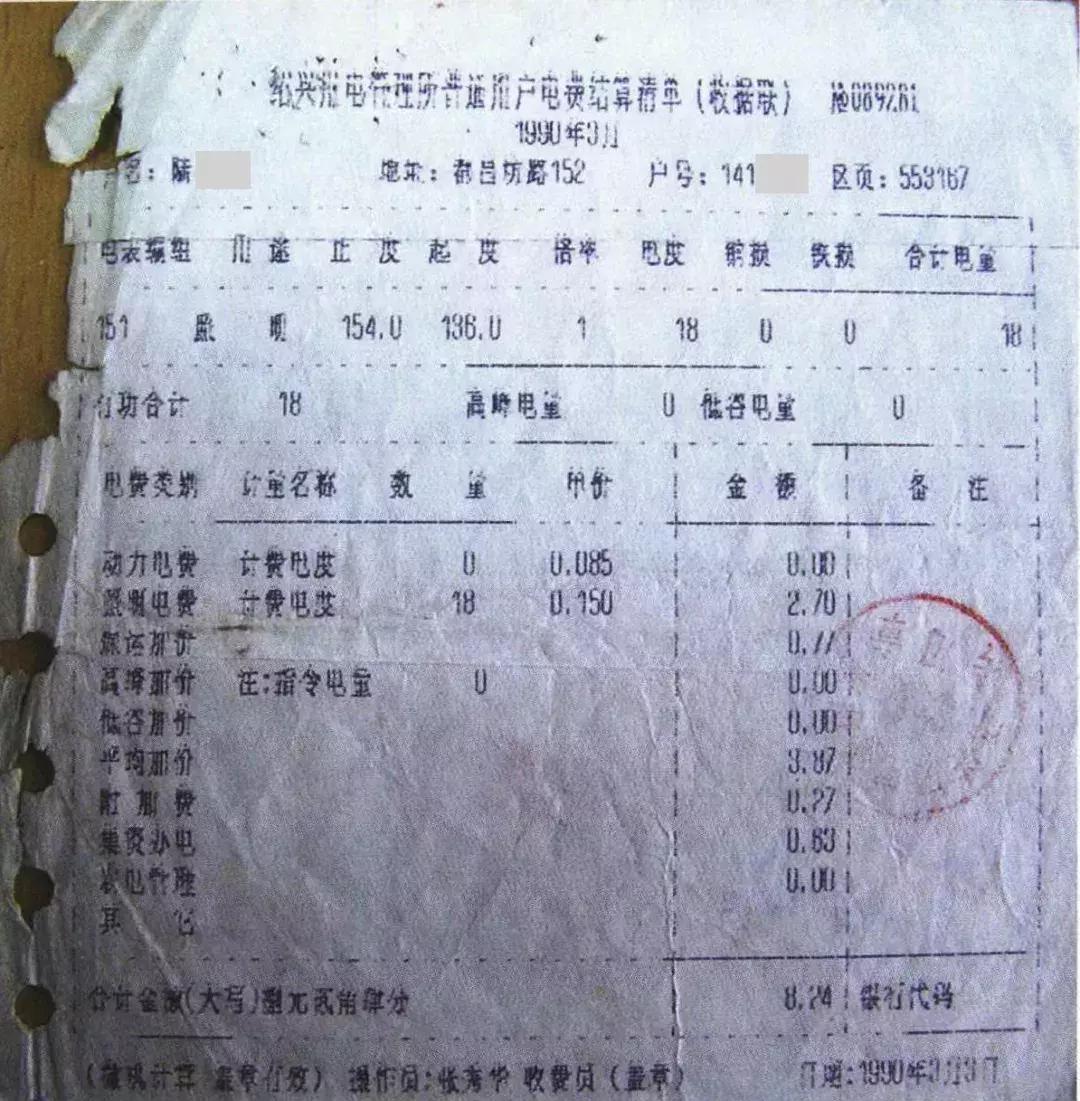 绍兴供电管理所普通用户电费结算清单(收据联) №089281
1990年3月
名:陆 地址:都昌坊路152 户号:141 区页:553167
电表编组 用途 止度 起度 倍率 电度 铜损 铁损 合计电量
151 照明 154.0 136.0 1 18 0 0 18
有功合计 18 高峰电量 0 低谷电量 0
电费类别 计量名称 数量 单价 金额 备注
动力电费 计费电度 0 0.085 0.00
照明电费 计费电度 18 0.150 2.70
加价 0.77
高峰加价 注:指令电量 0 0.00
低谷加价 0.00
平均加价 3.87
附加费 0.27
集资办电 0.63
农电管理 0.00
其它
合计金额(大写)捌元贰角肆分 8.24 银行代码
(微机计算 盖章有效) 操作员:张秀华 收费员(盖章) 日期:1990年3月3日